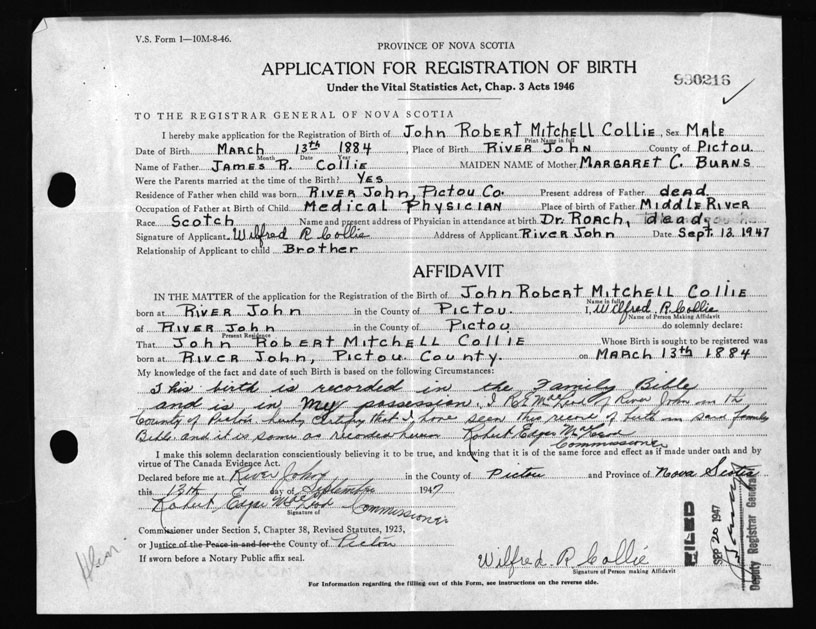 V.S. Form 1—10M-8-46.
PROVINCE OF NOVA SCOTIA
APPLICATION FOR REGISTRATION OF BIRTH
930216
Under the Vital Statistics Act, Chap. 3 Acts 1946
TO THE REGISTRAR GENERAL OF NOVA SCOTIA
I hereby make application for the Registration of Birth of John Robert Mitchell Collie, Sex Male
Print Name in full
Date of Birth March 13th 1884, Place of Birth River John County of Pictou
Month Date Year
Name of Father James R. Collie MAIDEN NAME of Mother Margaret C. Burns
Were the Parents married at the time of the Birth? Yes
Residence of Father when child was born River John, Pictou Co. Present address of Father dead.
Occupation of Father at Birth of Child Medical Physician Place of birth of Father Middle River
Race Scotch Name and present address of Physician in attendance at birth Dr. Roach, dead
Signature of Applicant Wilfred R Collie Address of Applicant River John Date Sept. 13. 1947
Relationship of Applicant to child Brother
AFFIDAVIT
IN THE MATTER of the application for the Registration of the Birth of John Robert Mitchell Collie
Name in full
born at River John in the County of Pictou. I, Wilfred R. Collie
Name of Person Making Affidavit
of River John in the County of Pictou do solemnly declare:
Present Residence
That John Robert Mitchell Collie Whose Birth is sought to be registered was
born at River John, Pictou County. on March 13th 1884
My knowledge of the fact and date of such Birth is based on the following Circumstances:
This birth is recorded in the Family Bible
and is in My possession. I R.E. MacLeod of River John in the
County of Pictou hereby certify that I have seen this record of birth in said family
Bible and it is same as recorded hereon Robert Edgar MacLeod
Commissioner
I make this solemn declaration conscientiously believing it to be true, and knowing that it is of the same force and effect as if made under oath and by
virtue of The Canada Evidence Act.
Declared before me at River John in the County of Pictou and Province of Nova Scotia
this 13th day of September 1947
Robert Edgar MacLeod Commissioner
Signature of
Commissioner under Section 5, Chapter 38, Revised Statutes, 1923,
or Justice of the Peace in and for the County of Pictou
If sworn before a Notary Public affix seal.
Wilfred R Collie
Signature of Person making Affidavit
FILED
SEP 20 1947
Deputy Registrar General
For Information regarding the filling out of this Form, see instructions on the reverse side.